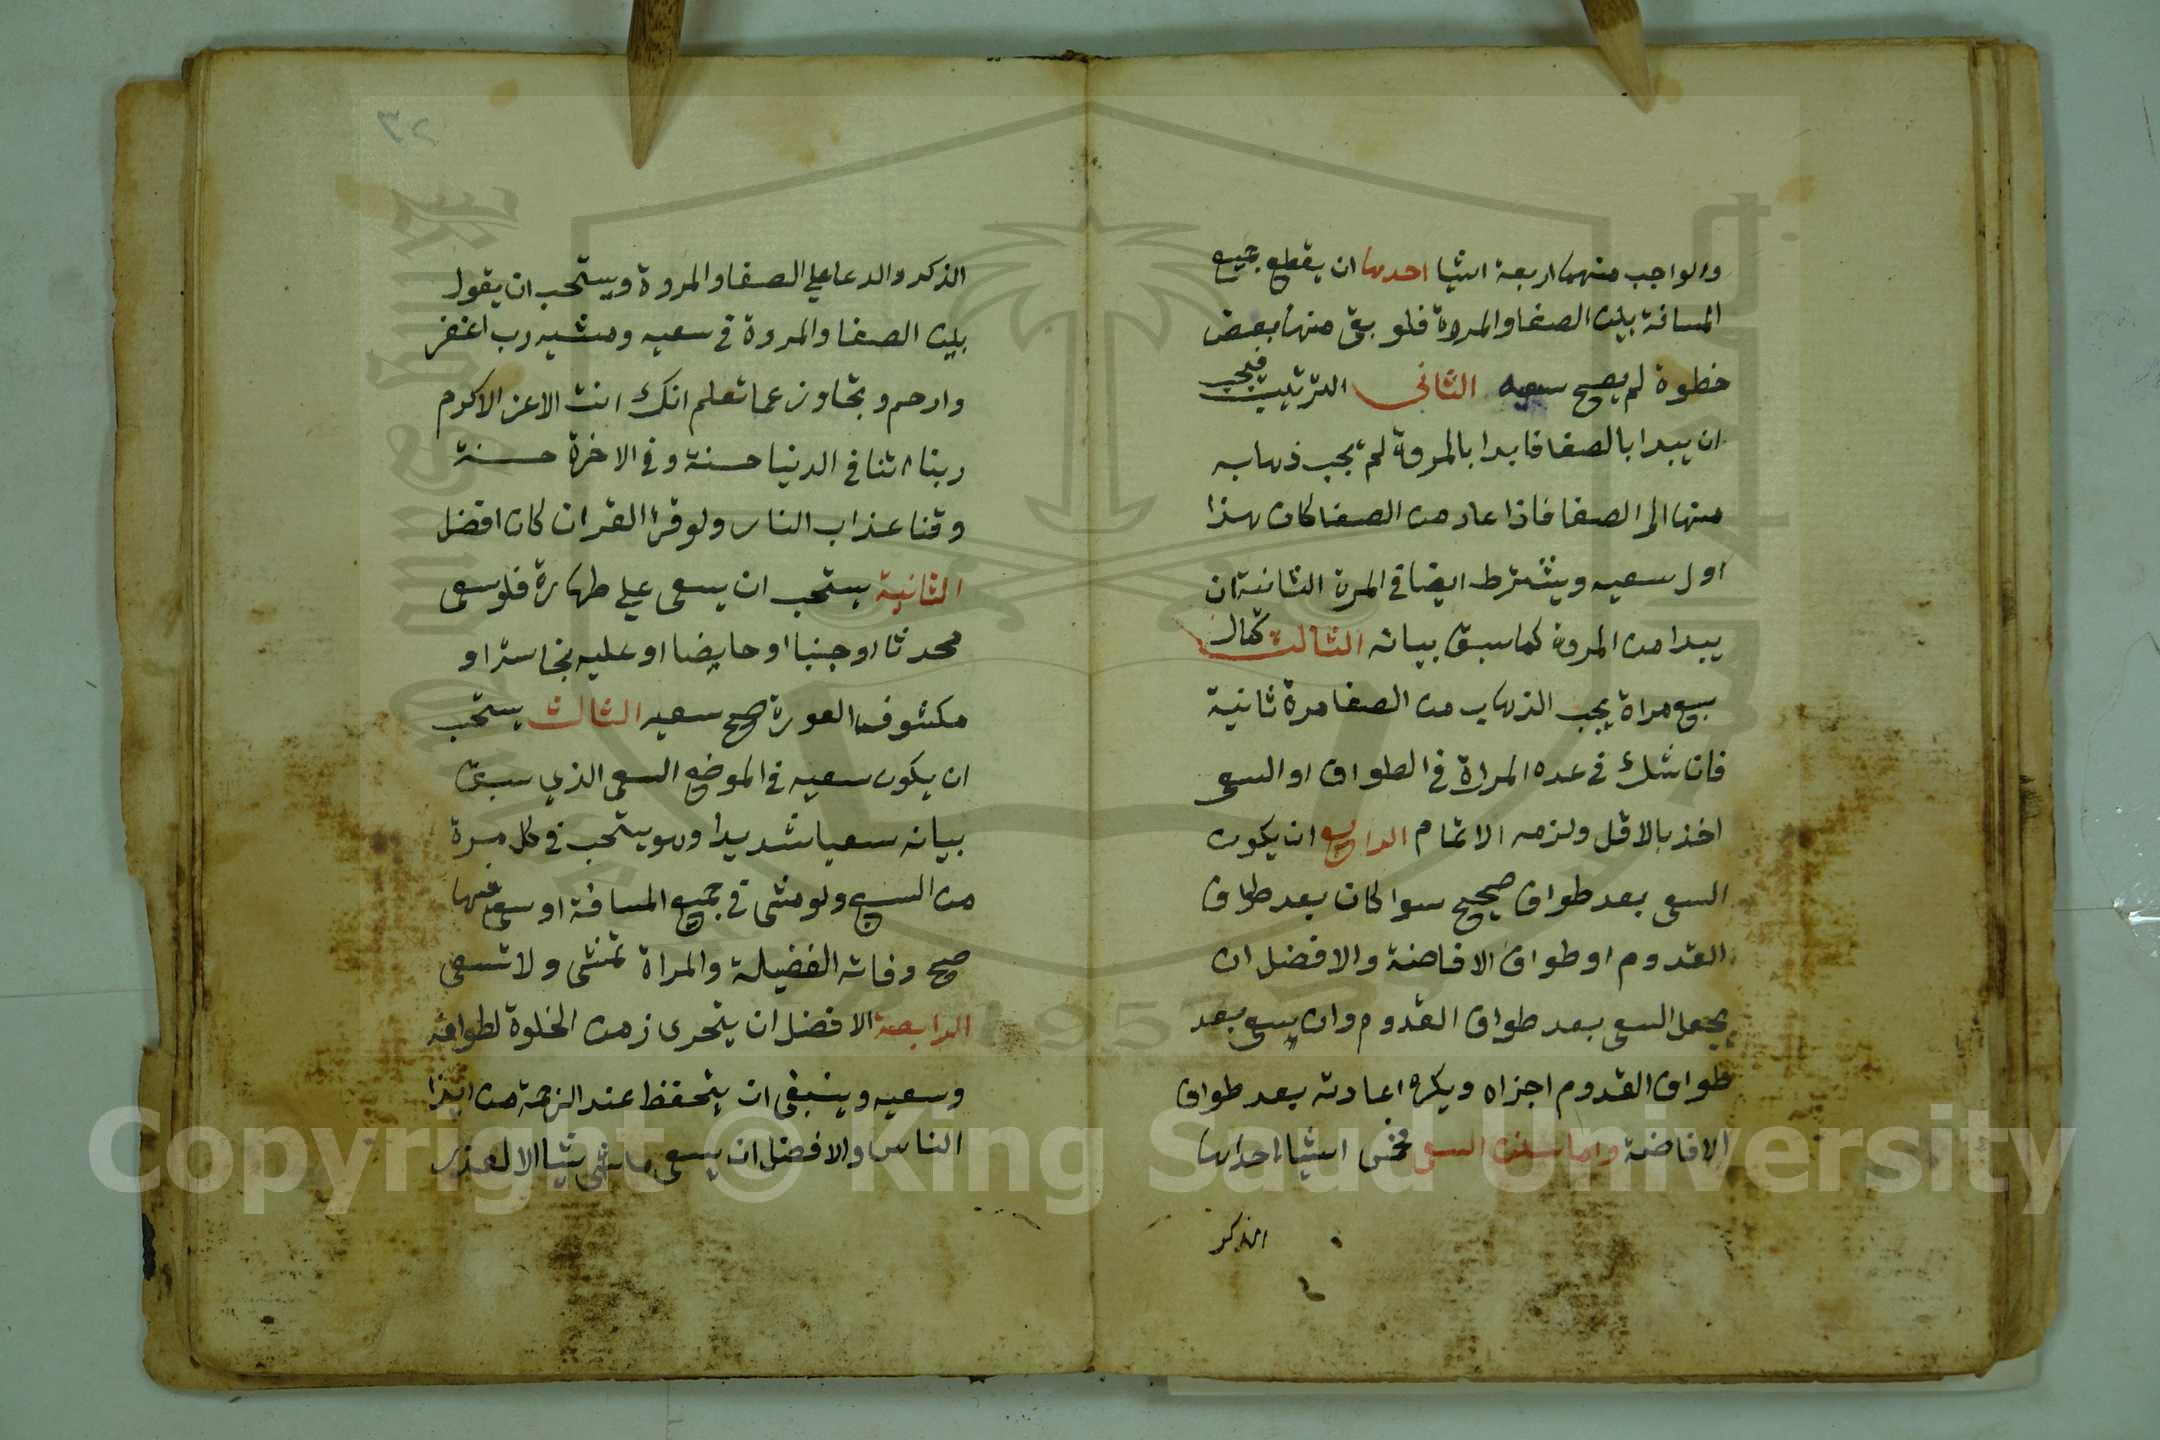 والواجب منهما اربعة اشيا احدها ان يقطع جميع
المسافة بين الصفا والمروة فلو بقى منها بعض
خطوة لم يصح سعيه الثانى الترتيب فيجب
ان يبدا بالصفا فا بدا بالمروة لم يجب ذهابه
منها الى الصفا فاذا عاد من الصفا كان هذا
اول سعيه ويشترط ايضا في المرة الثانية ان
يبدا من المروة كما سبق بيانه الثالث كمال
سبع مراة يجب الذهاب من الصفا مرة ثانية
فان شك في عدد المراة في الطواف او السعى
اخذ بالاقل ولزمه الاتمام الرابع ان يكون
السعى بعد طواف صحيح سوا كان بعد طواف
القدوم او طواف الافاضة والافضل ان
يجعل السعى بعد طواف القدوم وان يسعى بعد
طواف القدوم اجزاه ويكره اعادته بعد طواف
الافاضة واما سنن السعى فخمس اشيا احداها
الذكر
٢٣
الذكر والدعا على الصفا والمروة ويستحب ان يقول
بين الصفا والمروة في سعيه ومشيه رب اغفر
وارحم وتجاوز عما تعلم انك انت الاعز الاكرم
ربنا اتنا في الدنيا حسنة وفي الاخرة حسنة
وقنا عذاب النار ولو قرا القران كان افضل
الثانية يستحب ان يسعى على طهارة فلو سعى
محدثا او جنبا او حايضا او عليه نجاسة او
مكشوف العورة صح سعيه الثالث يستحب
ان يكون سعيه في الموضع السعى الذي سبق
بيانه سعيا شديدا وهو يستحب في كل مرة
من السبع ولو مشى في جميع المسافة او سعى فيها
صح وفاته الفضيلة والمراة تمشى ولا تسعى
الرابعة الافضل ان يتحرى زمن الخلوة لطوافه
وسعيه وينبغى ان يتحفظ عند الزحمة من ايذا
الناس والافضل ان يسعى ماشيا الا لعذر
Copyright © King Saud University
1957